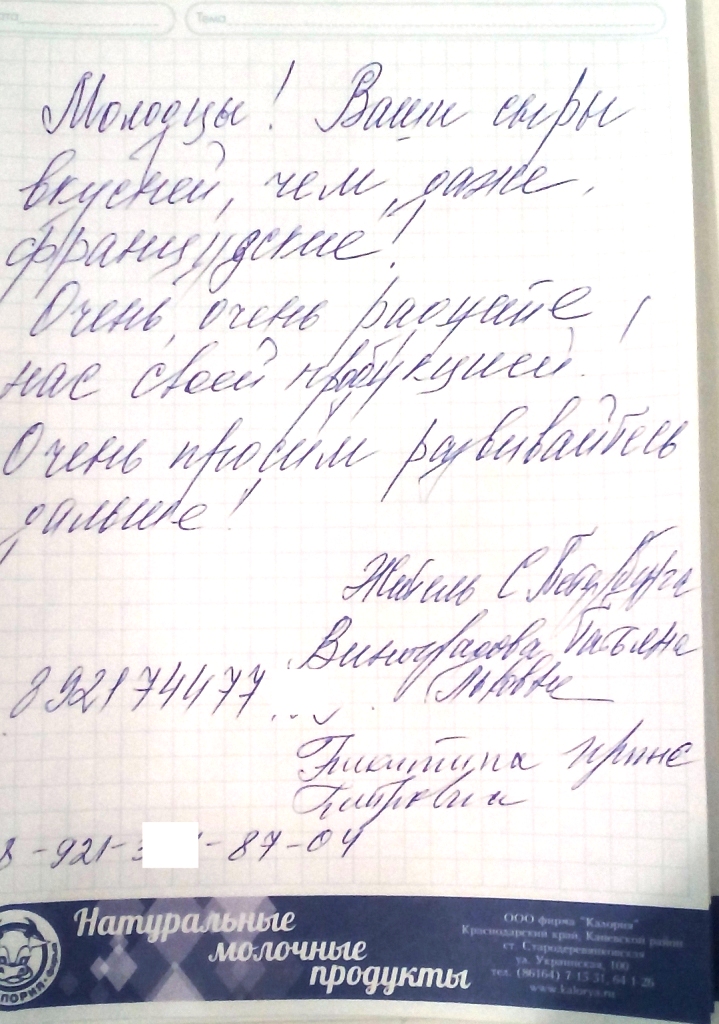 Тема
Молодцы! Ваши сыры
вкусней, чем даже
французские!
Очень, очень радуете
нас своей продукцией!
Очень просим развивайтесь
дальше!
Житель С Петербурга
Виноградова Татьяна
Львовна
892174477
Ирина
8-921-3 -87-04
Натуральные
молочные
продукты
ООО фирма "Калория"
Краснодарский край, Каневской район
ст. Стародеревянковская
ул. Украинская, 100
тел. (86164) 7-15-31, 64-1-26
www.kalorya.ru